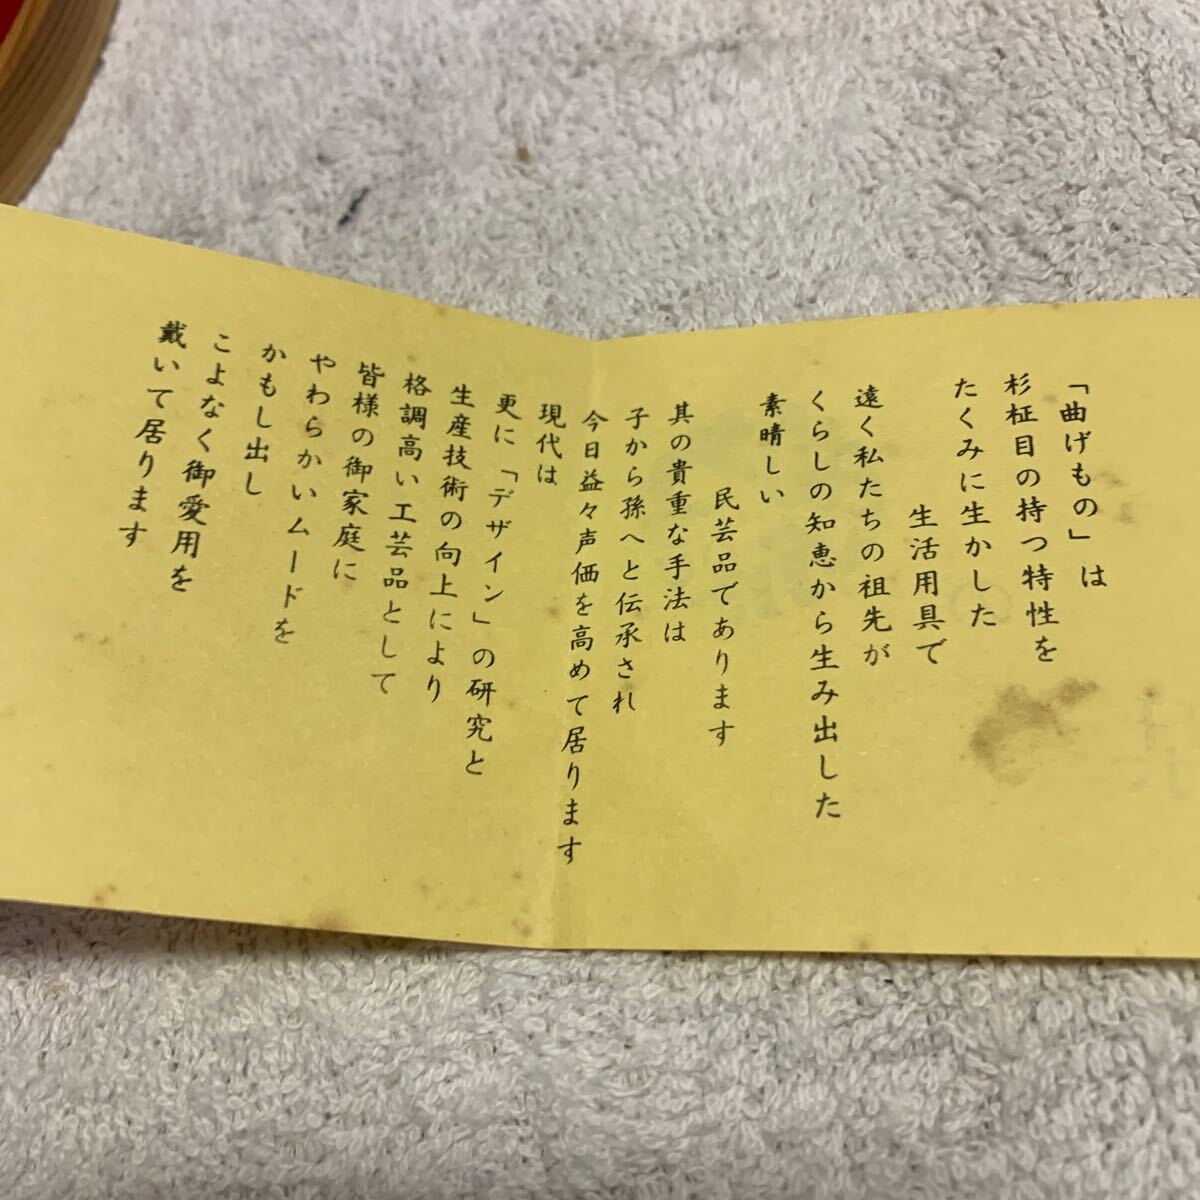 「曲げもの」は
杉柾目の持つ特性を
たくみに生かした
生活用具で
遠く私たちの祖先が
くらしの知恵から生み出した
素晴しい
民芸品であります
其の貴重な手法は
子から孫へと伝承され
今日益々声価を高めて居ります
現代は
更に「デザイン」の研究と
生産技術の向上により
格調高い工芸品として
皆様の御家庭に
やわらかいムードを
かもし出し
こよなく御愛用を
戴いて居ります